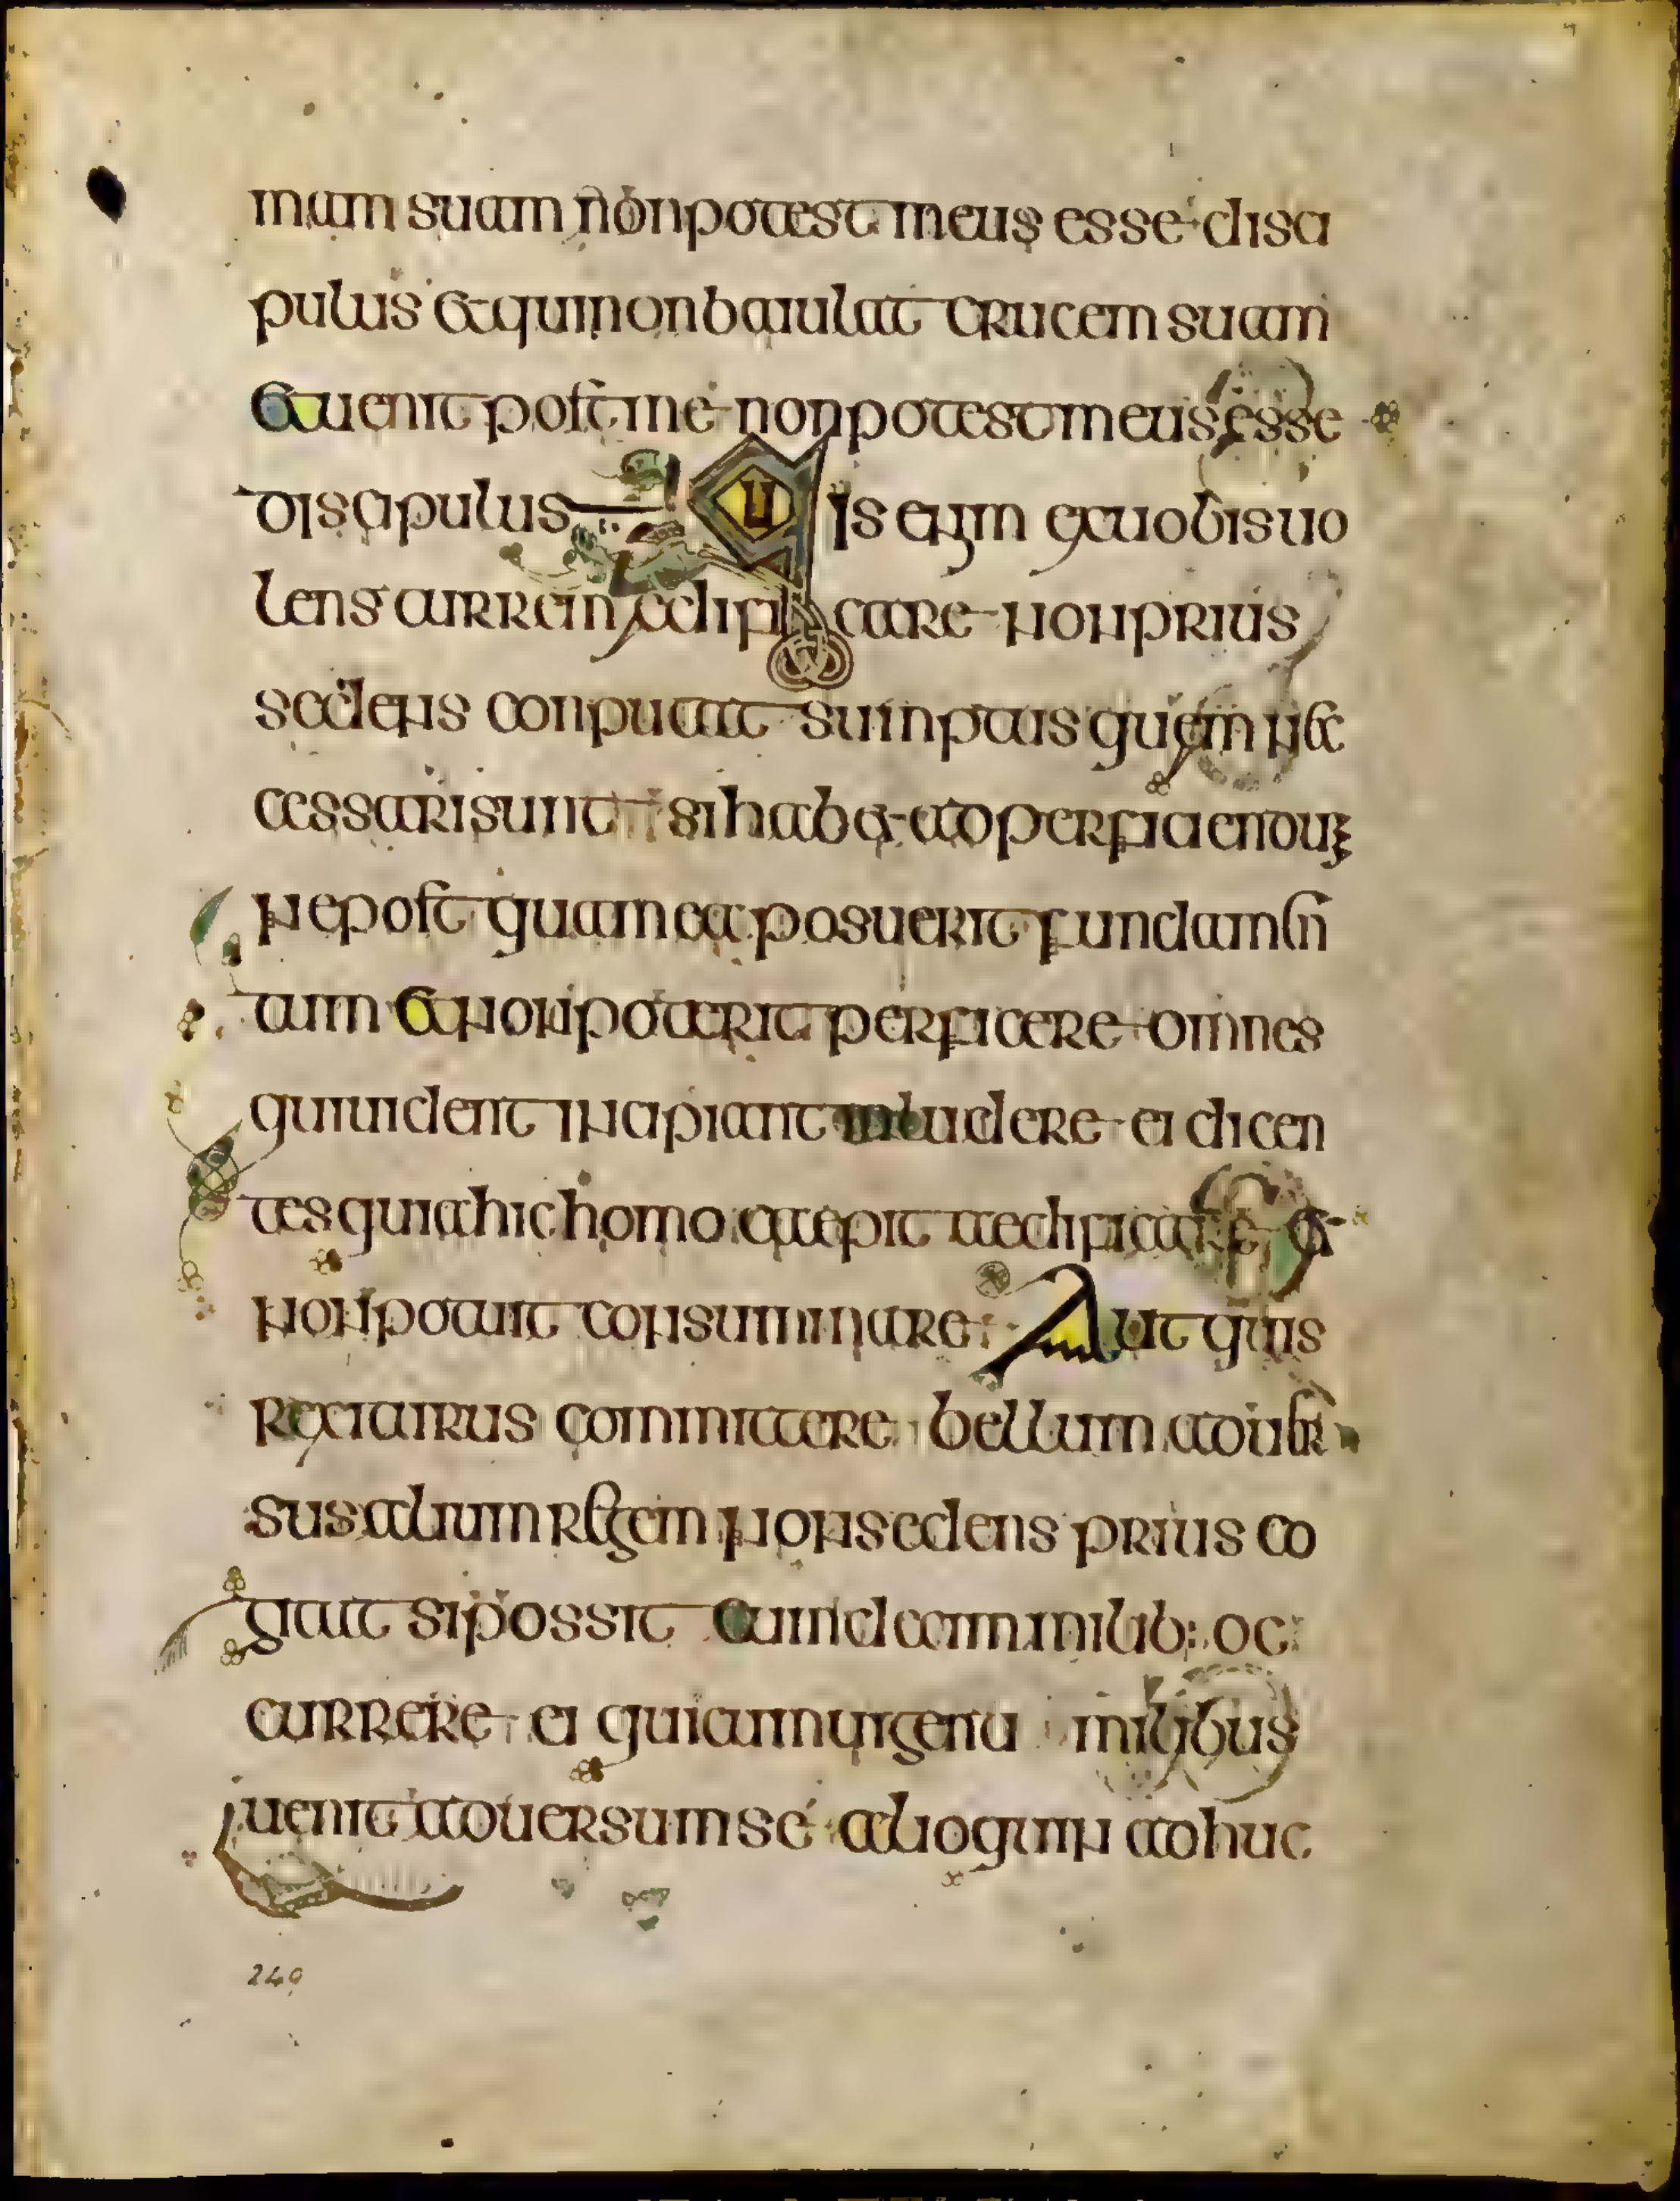 mam suam non potest meus esse disci
pulus et qui non baiulat crucem suam
et uenit post me non potest meus esse
discipulus Quis enim ex uobis uo
lens turrem aedificare non prius
sedens conputat sumptus qui nec
cessari sunt si habet ad perficiendum
ne post quam ea posuerit fundamen
tum et non poterit perficere omnes
qui uident incipiant inludere ei dicen
tes quia hic homo coepit aedificare et
non potuit consummare Aut quis
rex iturus committere bellum aduer
sus alium regem non sedens prius co
gitat si possit cum decim milib: oc
currere ei qui cum uigenti milibus
uenit aduersum se alioquin adhuc
240